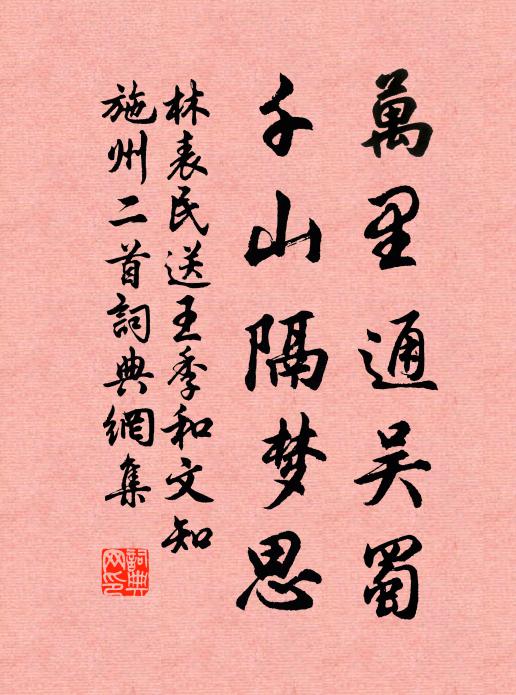 萬里通吴蜀
千山隔梦思
林表民送王季和文知
施州二首詞典網集
詞典網印